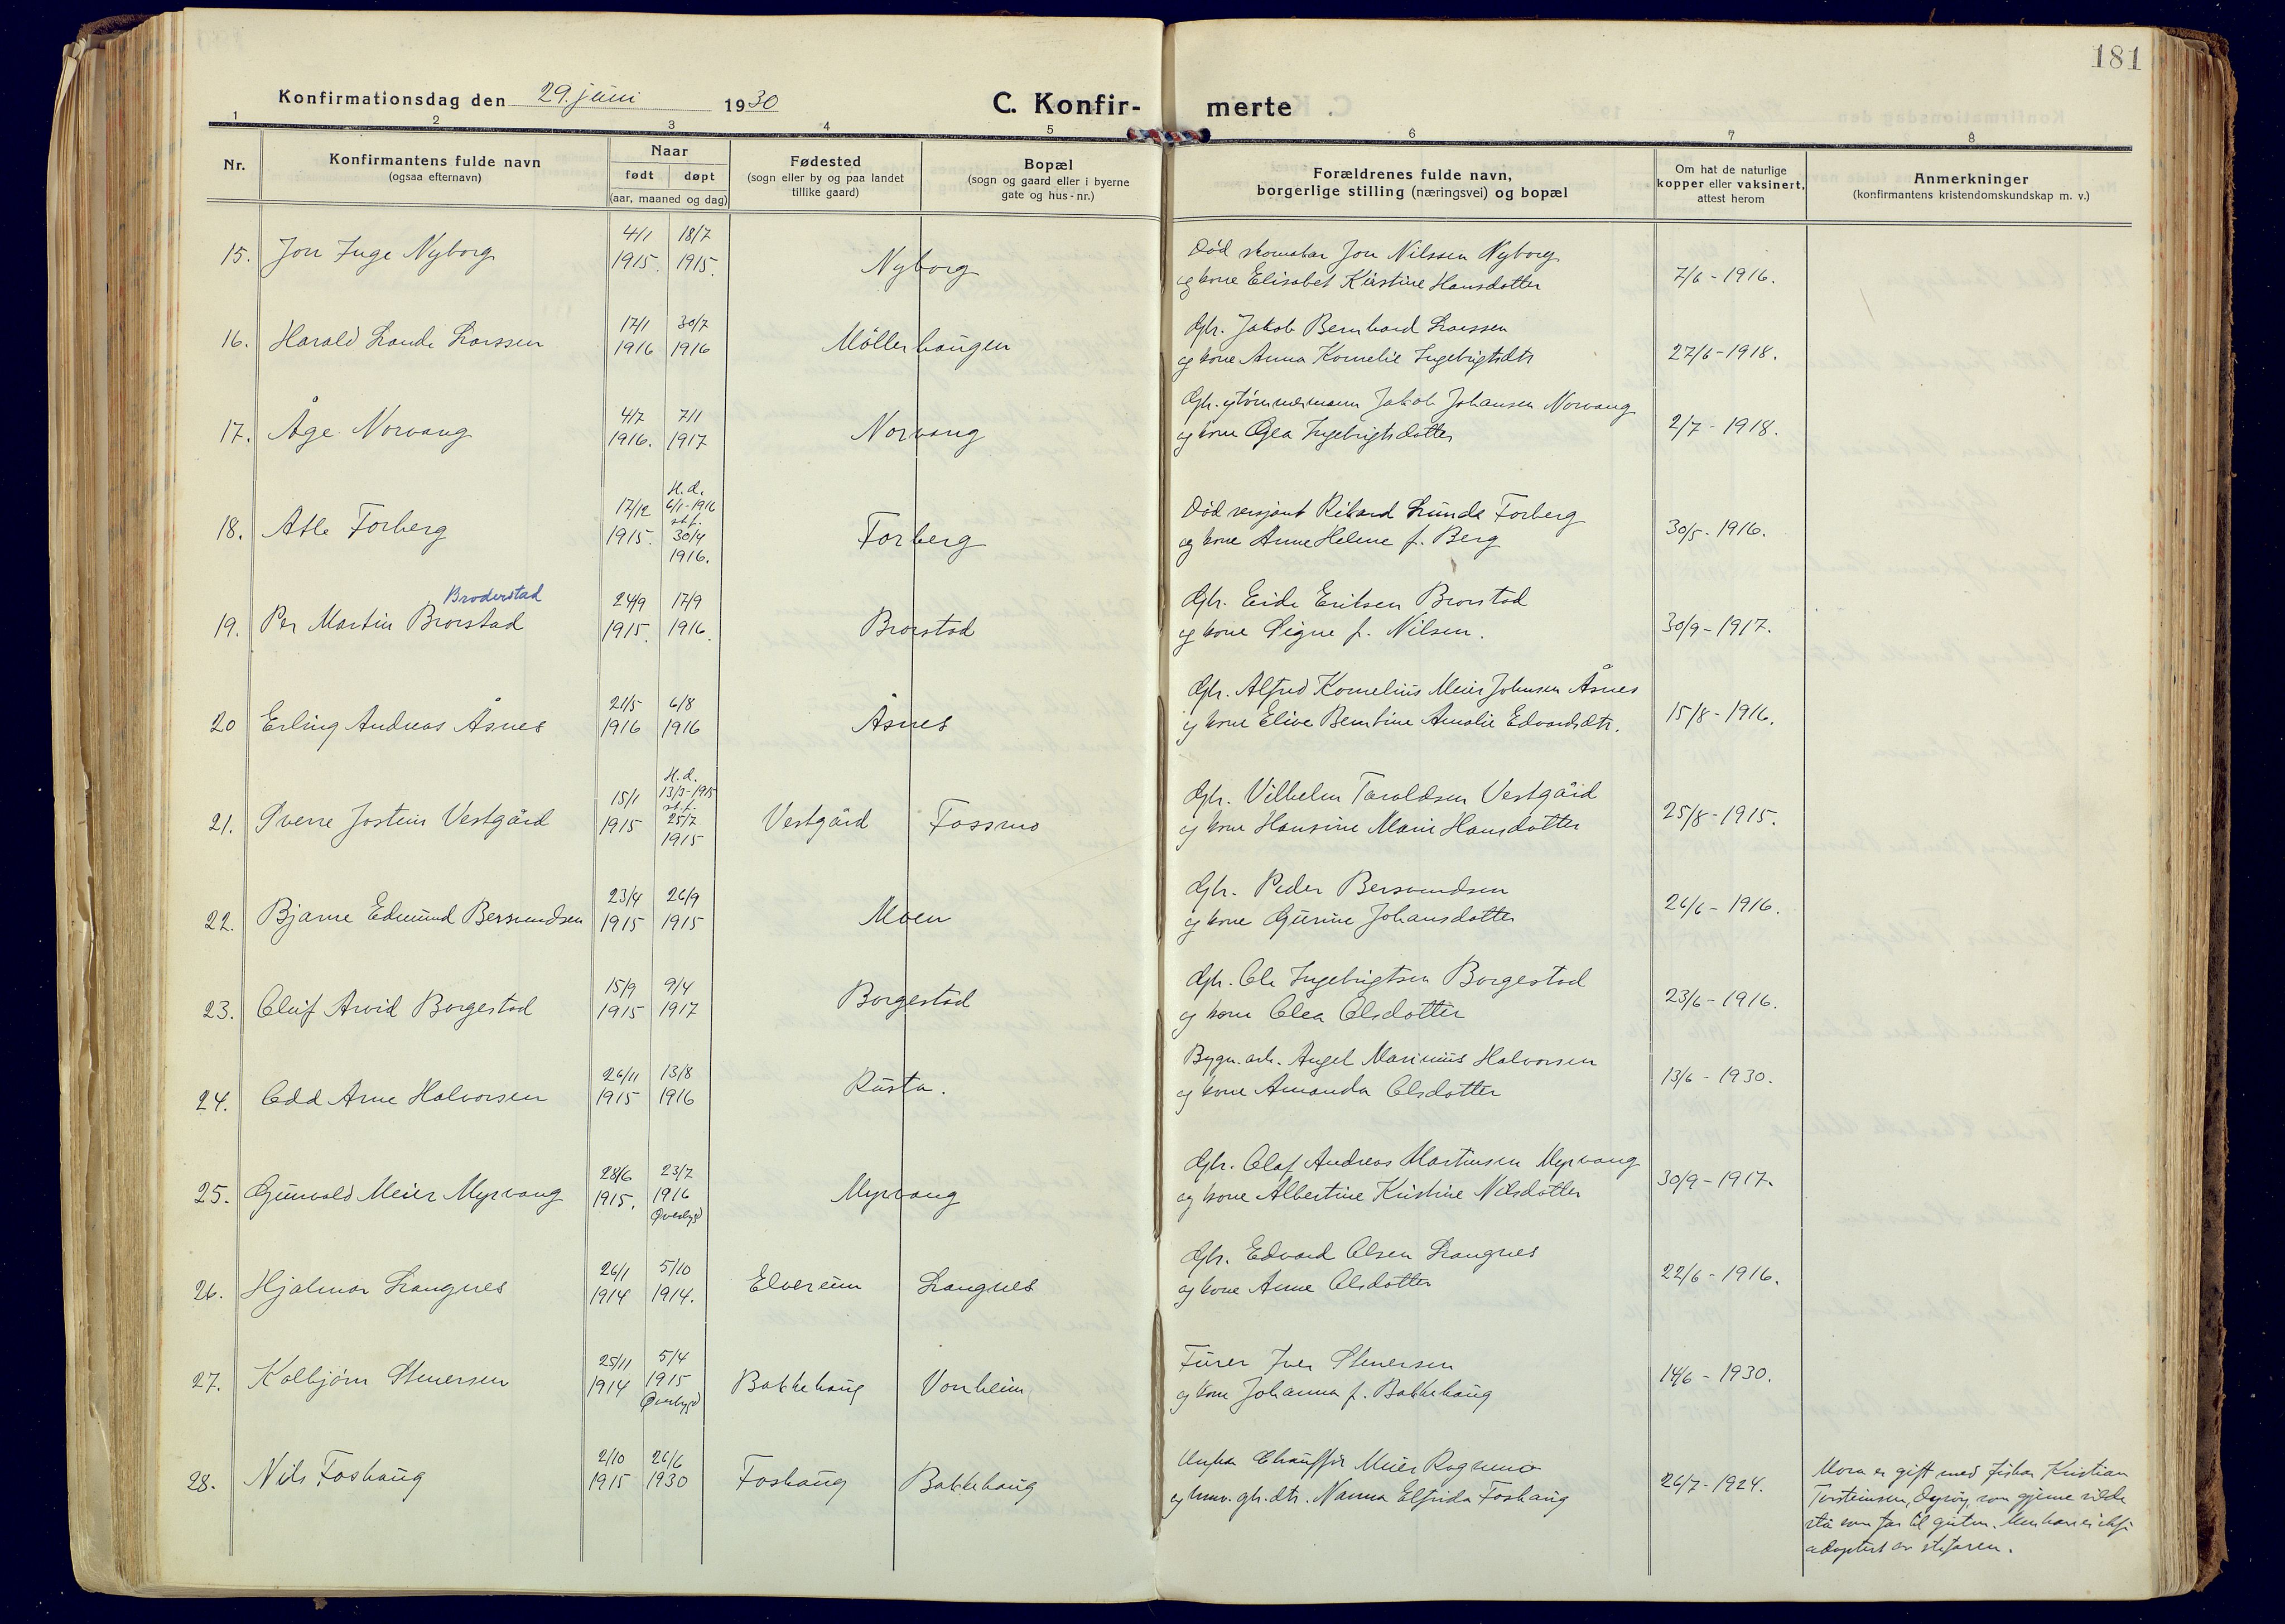 181
Konfirmationsdag den 29. juni 1930
C. Konfirmerte
1 2 3 4 5 6 7 8
Nr.
Konfirmantens fulde navn
(ogsaa efternavn)
Naar
født døpt
(aar, maaned og dag)
Fødested
(sogn eller by og paa landet
tillike gaard)
Bopæl
(sogn og gaard eller i byerne
gate og hus-nr.)
Forældrenes fulde navn,
borgerlige stilling (næringsvei) og bopæl
Om hat de naturlige
kopper eller vaksinert,
attest herom
Anmerkninger
(konfirmantens kristendomskundskap m. v.)
15. Jon Inge Nyborg 4/1 1915. 18/7 1915. Nyborg
Død skomaker Jon Nilssen Nyborg
og kone Elisabet Kirstine Hansdotter 7/6 - 1916.
16. Harald Lande Larssen 17/1 1916 30/7 1916 Möllerhaugen
Gbr. Jakob Bernhard Larssen
og kone Anna Kornelie Ingebrigtsdtr 27/6 - 1918.
17. Åge Norvang 4/7 1916. 7/1 1917 Norvang
Gbr. og tømmermann Jakob Johansen Norvang
og kone Olga Ingebrigtsdotter 2/7 - 1918.
18. Atle Forberg 17/12 1915. H.d. 6/1-1916 st.f. 30/4 1916. Forberg
Død sersjant Rikard Lunde Forberg
og kone Anne Helene f. Berg 30/5 - 1916.
Broderstad
19. Per Martin Brorstad 24/9 1915. 17/9 1916. Brorstad
Gbr. Eide Eriksen Brorstad
og kone Signe f. Nilsen. 30/9 - 1917.
20 Erling Andreas Åsnes 21/5 1916 6/8 1916 Åsnes
Gbr. Alfred Kornelius Meier Johnsen Åsnes
og kone Elive Berntine Amalie Edvardsdtr. 15/8 - 1916.
21. Sverre Jostein Vestgård 15/1 1915 H.d. 13/3-1915 st.f. 25/7 1915 Vestgård Fossmo
Gbr. Vilhelm Taraldsen Vestgård
og kone Hansine Marie Hansdotter 25/8 - 1915.
22. Bjarne Edmund Bersvendsen 23/4 1915 26/9 1915 Moen
Gbr. Peder Bersvendsen
og kone Gurine Johansdotter 26/6 - 1916.
23. Oluf Arvid Borgestad 15/9 1915 9/4 1917 Borgestad
Gbr. Ole Ingebrigtsen Borgestad
og kone Olea Olsdotter 23/6 - 1916.
24. Odd Arne Halvorsen 26/11 1915 13/8 1916 Rusta.
Bygn. arb. Angel Marinius Halvorsen
og kone Amanda Olsdotter 13/6 - 1930.
25. Gunvald Meier Myrvang 28/6 1915. 23/7 1916 Øverbygd Myrvang
Gbr. Olaf Andreas Martinsen Myrvang
og kone Albertine Kristine Nilsdotter 30/9 - 1917.
26. Hjalmar Langnes 26/1 1914 5/10 1914. Elvereim Langnes
Gbr. Edvard Olsen Langnes
og kone Anne Olsdotter 22/6 - 1916.
27. Kolbjørn Stenersen 25/11 1914 5/4 1915 Øverbygd Bakkehaug Vonheim
Furer Iver Stenersen
og kone Johanna f. Bakkehaug 14/6 - 1930.
28. Nils Foshaug 2/10 1915 26/6 1930 Foshaug Bakkehaug
Unkar Chauffør Meier Rognmo
og gbr. dtr. Nanna Elfrida Foshaug 26/7 - 1924.
Mora er gift med fisker Kristian
Torsteinsen, Dyrøy, som gjerne vilde
stå som far til guten. Men han er ikkje
adoptert av stefaren.